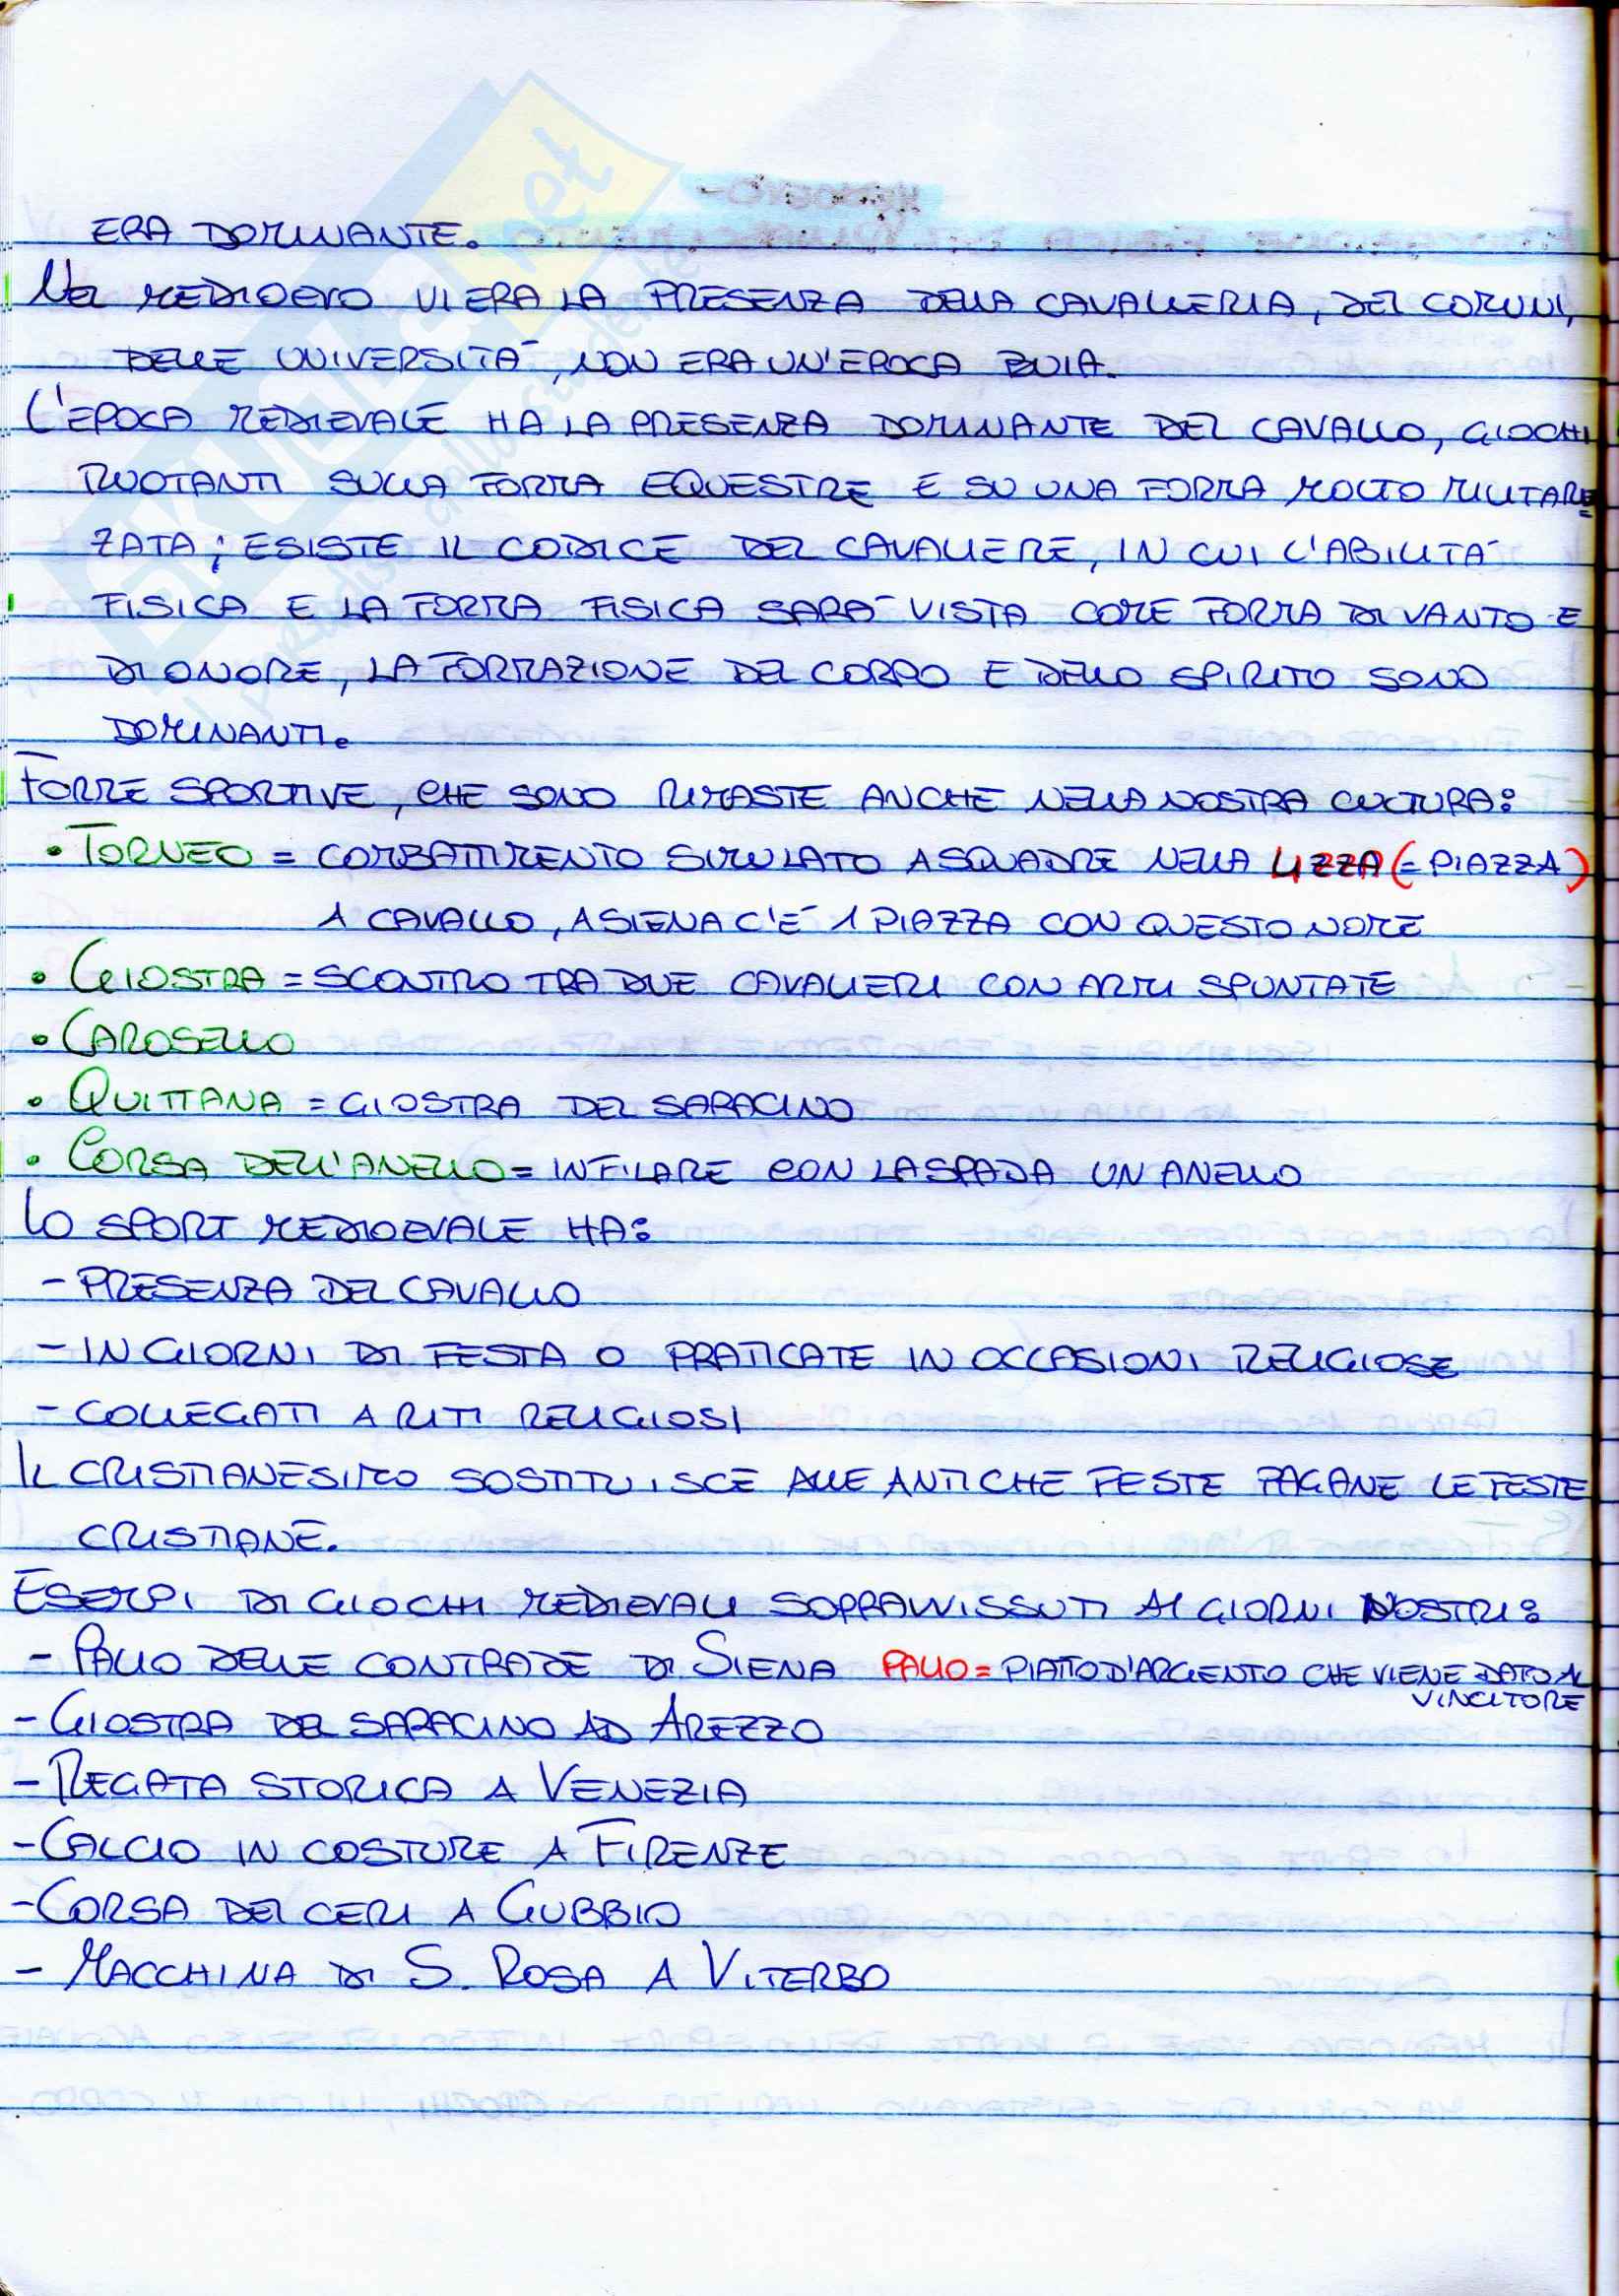 ERA DOMINANTE.
NEL MEDIOEVO VI ERA LA PRESENZA DELLA CAVALLERIA, DEI COMUNI,
DELLE UNIVERSITÀ, NON ERA UN'EPOCA BUIA.
L'EPOCA MEDIEVALE HA LA PRESENZA DOMINANTE DEL CAVALLO, GIOCHI
RUOTANTI SULLA FORMA EQUESTRE E SU UNA FORMA MOLTO MILITARIZ=
ZATA; ESISTE IL CODICE DEL CAVALIERE, IN CUI L'ABILITÀ
FISICA E LA FORMA FISICA SARÀ VISTA COME FORMA DI VANTO E
DI ONORE, LA FORMAZIONE DEL CORPO E DELLO SPIRITO SONO
DOMINANTI.
FORME SPORTIVE, CHE SONO RIMASTE ANCHE NELLA NOSTRA CULTURA:
• TORNEO = COMBATTIMENTO SIMULATO A SQUADRE NELLA LIZZA (= PIAZZA)
A CAVALLO, A SIENA C'È 1 PIAZZA CON QUESTO NOME
• GIOSTRA = SCONTRO TRA DUE CAVALIERI CON ARMI SPUNTATE
• CAROSELLO
• QUITTANA = GIOSTRA DEL SARACINO
• CORSA DELL'ANELLO = INFILARE CON LA SPADA UN ANELLO
LO SPORT MEDIOEVALE HA:
- PRESENZA DEL CAVALLO
- IN GIORNI DI FESTA O PRATICATE IN OCCASIONI RELIGIOSE
- COLLEGATI A RITI RELIGIOSI
IL CRISTIANESIMO SOSTITUISCE ALLE ANTICHE FESTE PAGANE LE FESTE
CRISTIANE.
ESEMPI DI GIOCHI MEDIEVALI SOPRAVVISSUTI AI GIORNI NOSTRI:
- PALIO DELLE CONTRADE DI SIENA PALIO = PIATTO D'ARGENTO CHE VIENE DATO AL
VINCITORE
- GIOSTRA DEL SARACINO AD AREZZO
- REGATA STORICA A VENEZIA
- CALCIO IN COSTUME A FIRENZE
- CORSA DEI CERI A GUBBIO
- MACCHINA DI S. ROSA A VITERBO